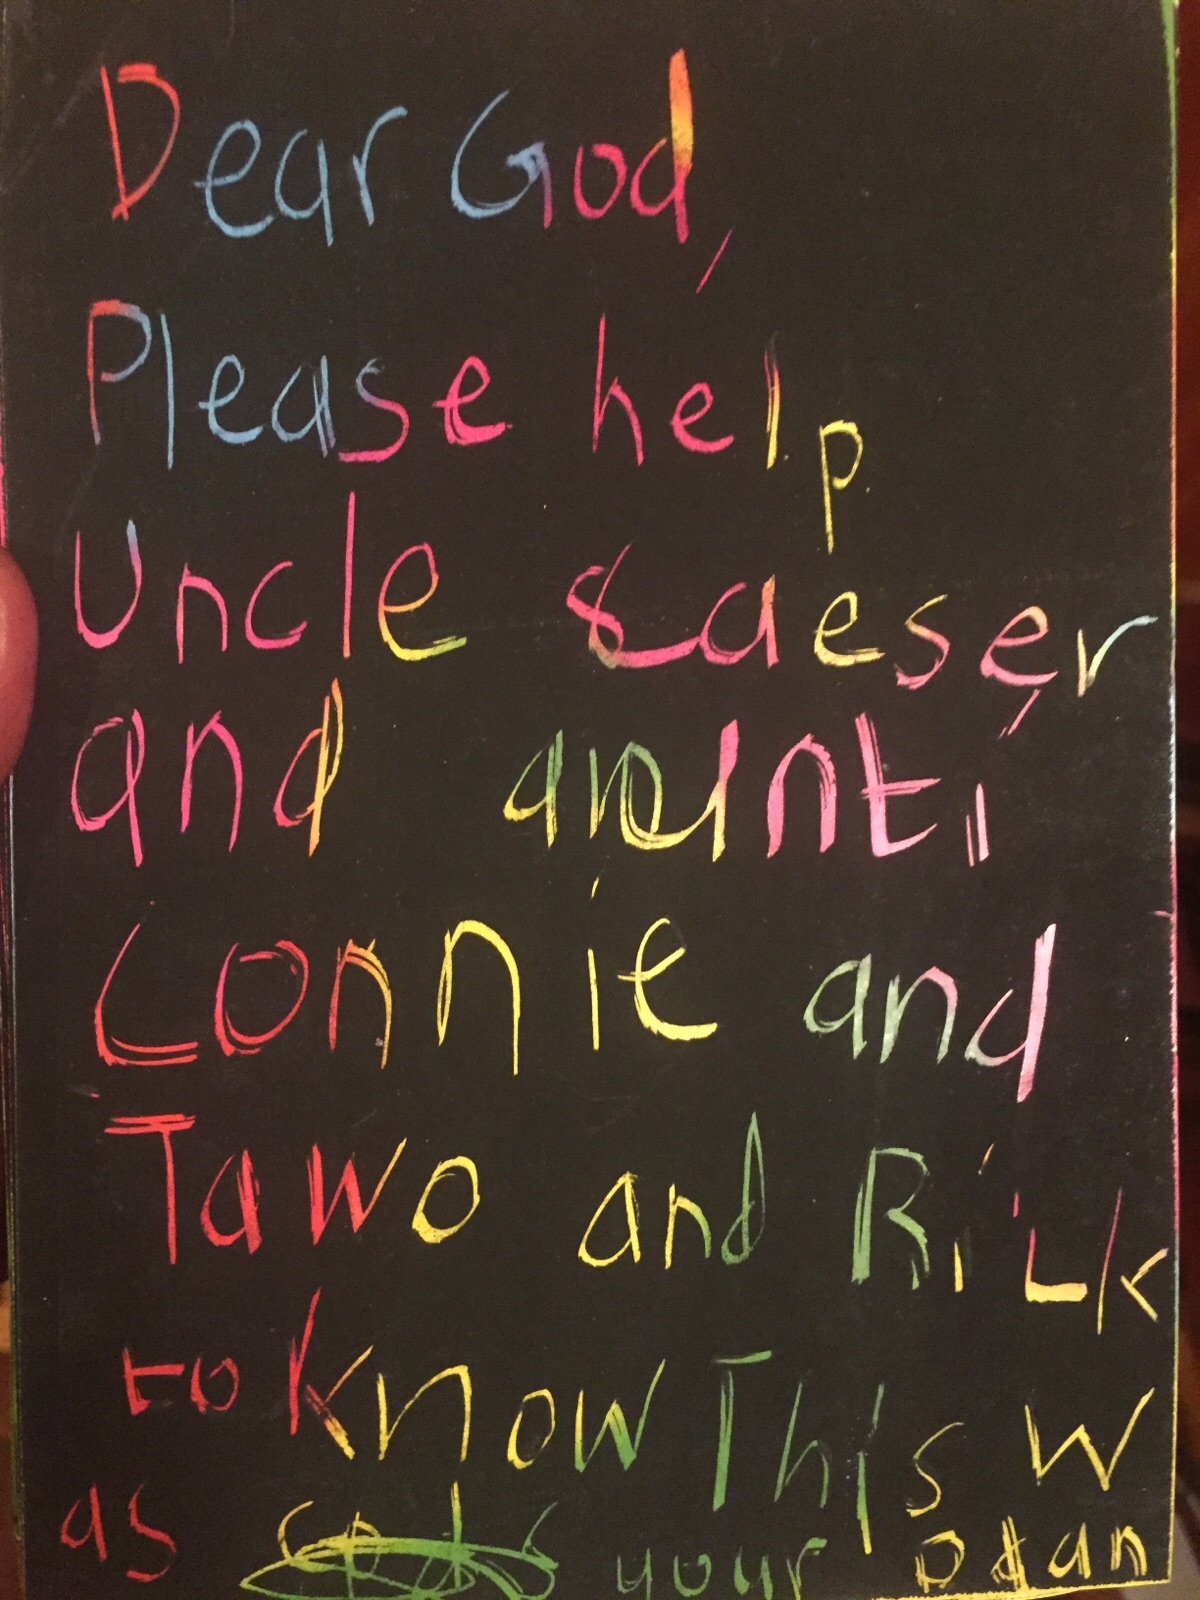 Dear God,
Please help
Uncle Caeser,
and aunti
Connie and
Tawo and Rick
to know This w
as your plan